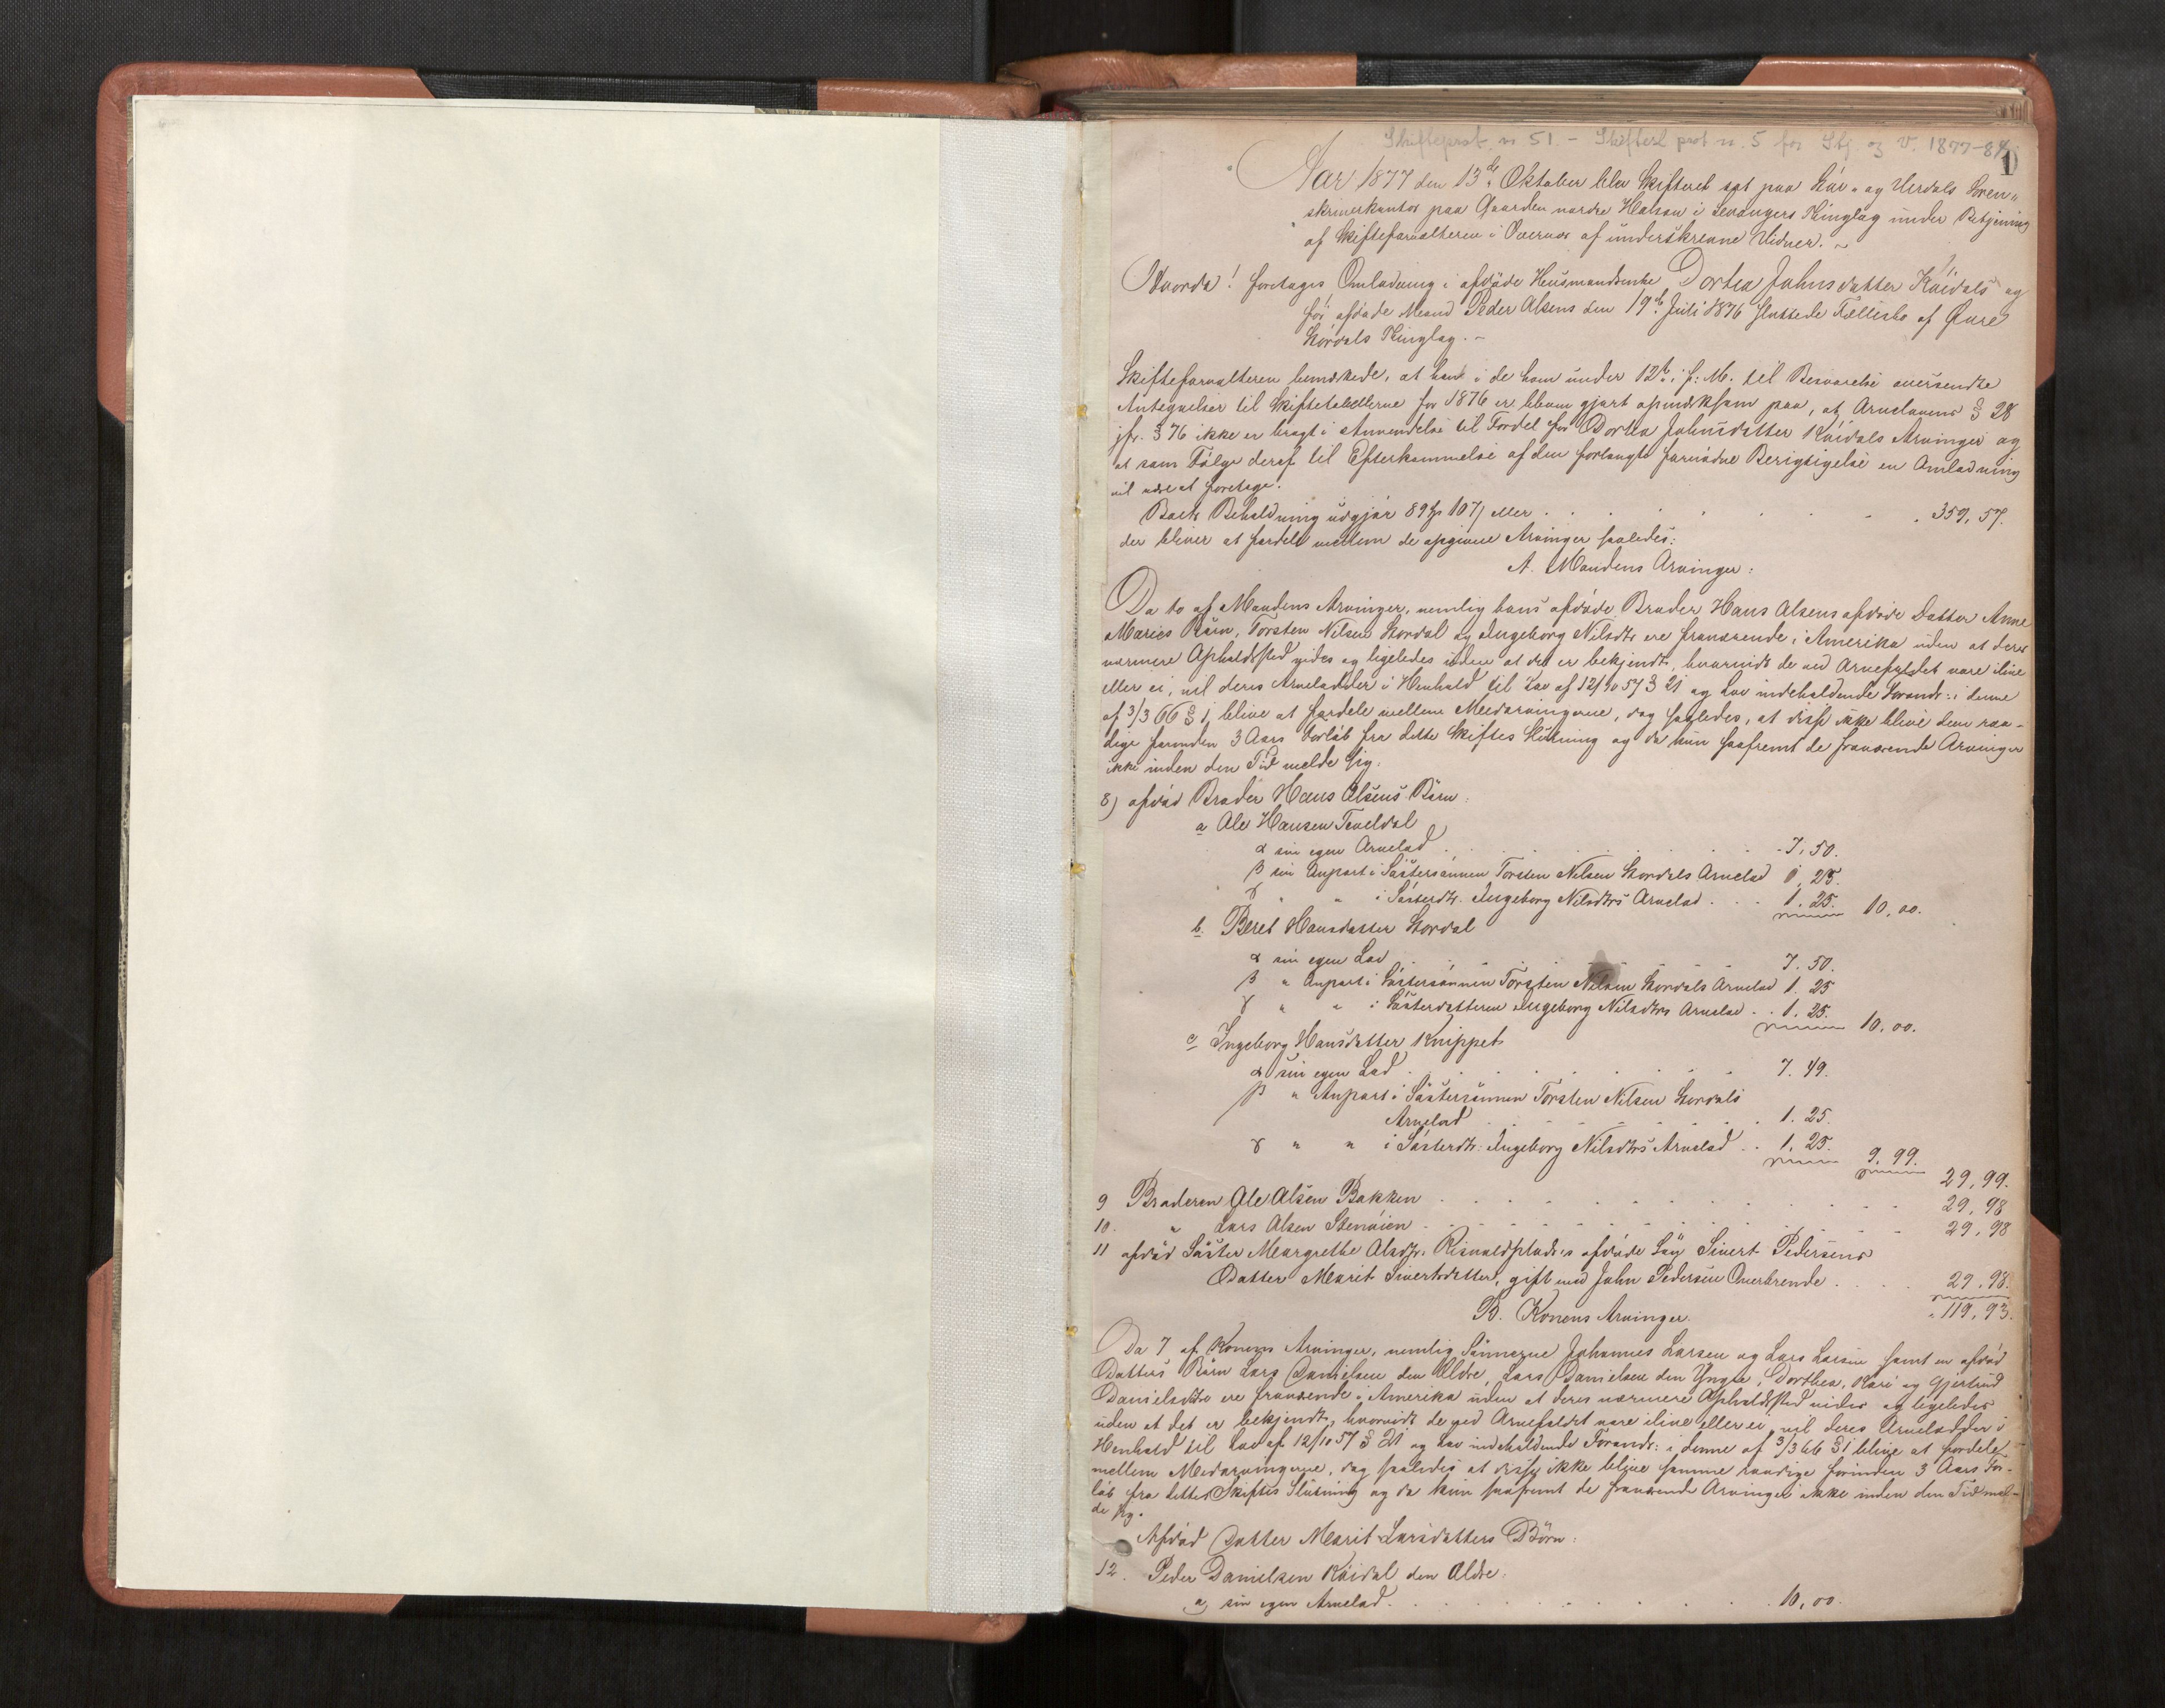 Skifteprot. n 51. - Skiftesl prot n. 5 for Stj. og V. 1877-84
1
Aar 1877 den 13de Oktober blev Skifteret sat paa Stør- og Værdals Soren-
skriverkontor paa Gaarden nordre Halsan i Levangers Thinglag under Betjening
af Skifteforvalteren i Overvær af underskrevne Vidner. -
Hvorda! foretages Omlodning i afdøde Husmandsenke Dortea Johnsdatter Kóidals og
før afdøde Mand Peder Olsens den 19de Juli 1876 sluttede Fællesbo af Øvre
Størdals Thinglag. -
Skifteforvalteren bemærkede, at han i de ham under 12te i f. M. til Besvarelse oversendte
Antegnelser til Skiftetabellerne for 1876 er bleven gjort opmærksom paa, at Arvelovens § 28
jfr. § 76 ikke er bragt i Anvendelse til Fordel for Dortea Johnsdatter Kóidals Arvinger og
at som Følge deraf til Efterkommelse af den forlangte fornødne Berigtigelse en Omlodning
vil være at foretage.
Boets Beholdning udgjør 89 Spd 107 ß eller . . . . 359,57.
der bliver at fordele mellem de opgivne Arvinger saaledes:
A. Mandens Arvinger:
Da to af Mandens Arvinger, nemlig hans afdøde Broder Hans Olsens afdøde Datter Anne
Maries Børn, Torsten Nilsen Stordal og Ingeborg Nilsdtr ere fraværende i Amerika uden at deres
nærmere Opholdssted vides og ligeledes uden at det er bekjendt, hvorvidt de ved Arvefaldet vare ilive
eller ei, vil deres Arvelodder i Henhold til Lov af 12/10 57 § 21 og Lov indeholdende Forandr: i denne
af 3/3 66 § 1, blive at fordele mellem Medarvingerne, dog saaledes, at disse ikke blive dem raa-
dige forinden 3 Aars Forløb fra dette Skiftes Slutning og da kun saafremt de fraværende Arvinger
ikke inden den Tid melde sig.
8) afdød Broder Hans Olsens Børn:
a Ole Hansen Teveldal
α sin egen Arvelod . . . . 7,50.
β sin Anpart i Søstersønnen Torsten Nilsen Stordals Arvelod 1,25.
γ " " i Søsterdtr. Ingeborg Nilsdtrs Arvelod . . . 1.25. 10,00.
b. Beret Hansdatter Stordal
α sin egen Lod . . . . 7.50.
β " Anpart i Søstersønnen Torsten Nilsen Stordals Arvelod 1.25
γ " " i Søsterdatteren Ingeborg Nilsdtrs Arvelod . . 1.25. 10,00.
c Ingeborg Hansdatter Knippet
α sin egen Lod . . . . 7.49.
β " Anpart i Søstersønnen Torsten Nilsen Stordals
Arvelod . . . . 1.25
γ " " i Søsterdtr: Ingeborg Nilsdtrs Arvelod . . 1,25. 9,99.
29,99.
9 Broderen Ole Olsen Bakken . . . . 29,98
10. " Lars Olsen Stenøien . . . . 29,98
11 afdød Søster Margrethe Olsdtr. Risvoldplads's afdøde Søn Sivert Pedersens
Datter Marit Sivertsdatter, gift med John Pedersen Overbrende . . . 29,98.
119,93.
B. Konens Arvinger.
Da 7 af Konens Arvinger, nemlig Sønnerne Johannes Larsen og Lars Larsen samt en afdød
Datters Børn Lars Danielsen den Ældre, Lars Danielsen den Yngre, Dorthea, Kari og Gjertrud
Danielsdtre ere fraværende i Amerika uden at deres nærmere Opholdssted vides og ligeledes
uden at det er bekjendt, hvorvidt de ved Arvefaldet vare ilive eller ei, vil deres Arvelodder i
Henhold til Lov af 12/10 57 § 21 og Lov indeholdende Forandr: i denne af 3/3 66 § 1 blive at fordele
mellem Medarvingerne, dog saaledes at disse ikke blive samme raadige forinden 3 Aars For-
løb fra dette Skiftes Slutning og da kun saafremt de fraværende Arvinger ikke inden den Tid mel-
de sig.
Afdød Datter Marit Larsdatters Børn:
12. Peder Danielsen Kóidal den Ældre.
a, sin egen Arvelod . . . . 10,00.